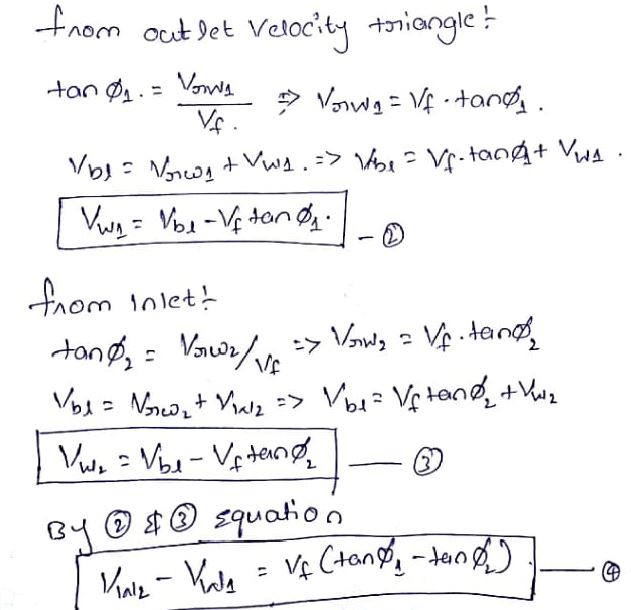 from outlet velocity triangle:
tan Ø₁ = Vrw₁ / Vf ⇒ Vrw₁ = Vf · tanØ₁ .
Vbl = Vrw₁ + Vw₁ . => Vbl = Vf · tanØ₁ + Vw₁ .
Vw₁ = Vbl - Vf tan Ø₁ . - ②
from inlet:
tanØ₂ = Vrw₂/Vf => Vrw₂ = Vf · tanØ₂
Vbl = Vrw₂ + Vw₂ => Vbl = Vf tanØ₂ + Vw₂
Vw₂ = Vbl - Vf tanØ₂ — ③
By ② & ③ equation
Vw₂ - Vw₁ = Vf (tanØ₁ - tanØ₂) — ④